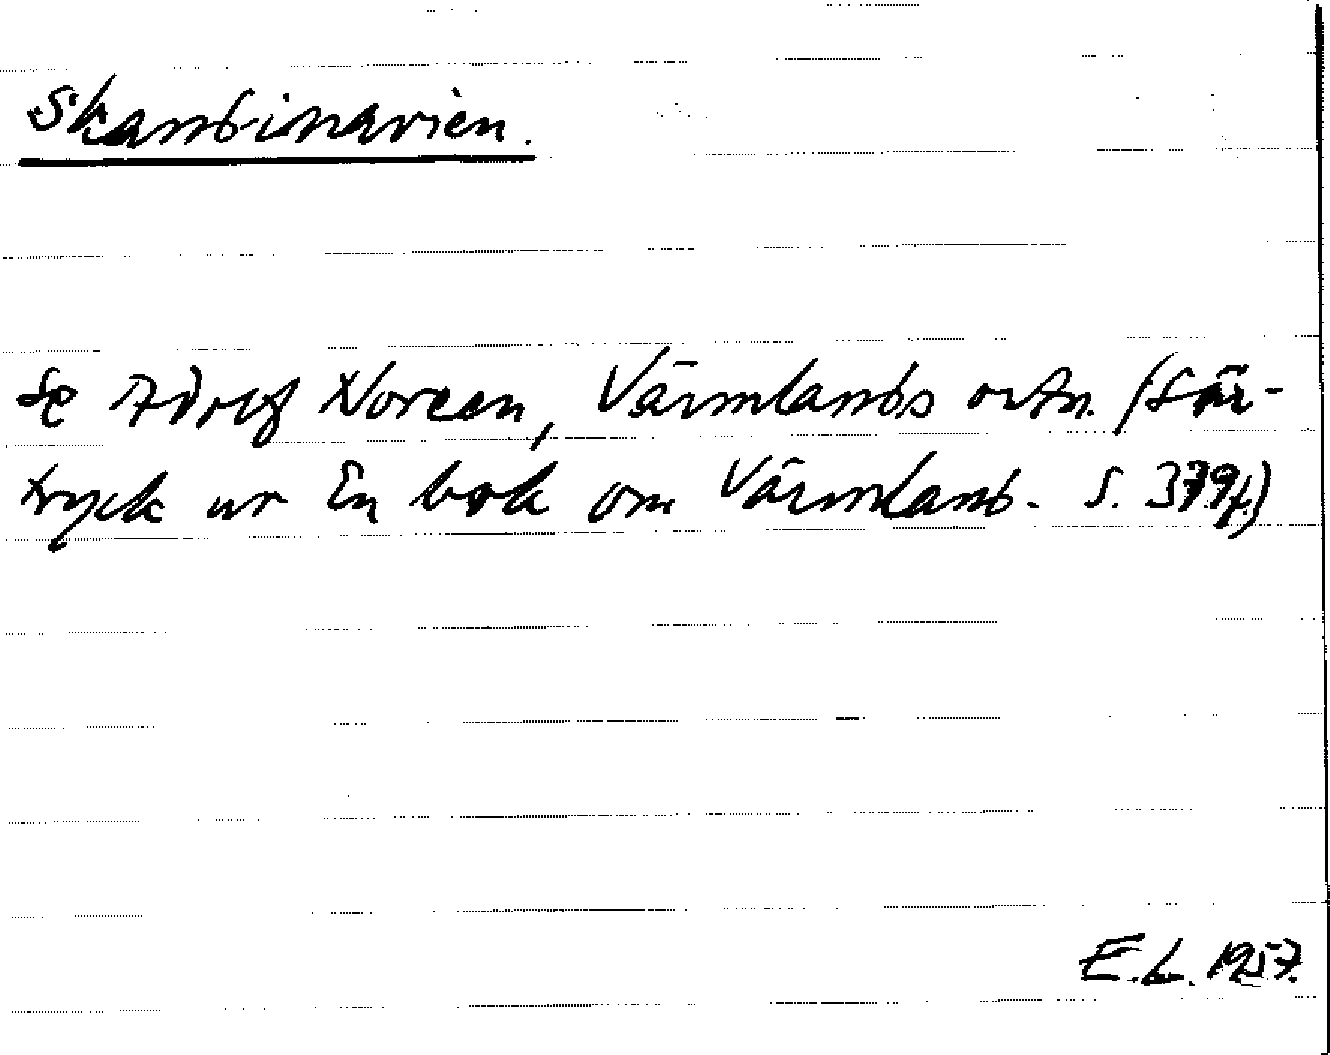 Skandinavien.
Se Adolf Noreen, Värmlands ortn. (Sär-
tryck ur En bok om Värmland. S. 379f.)
E.L. 1957.